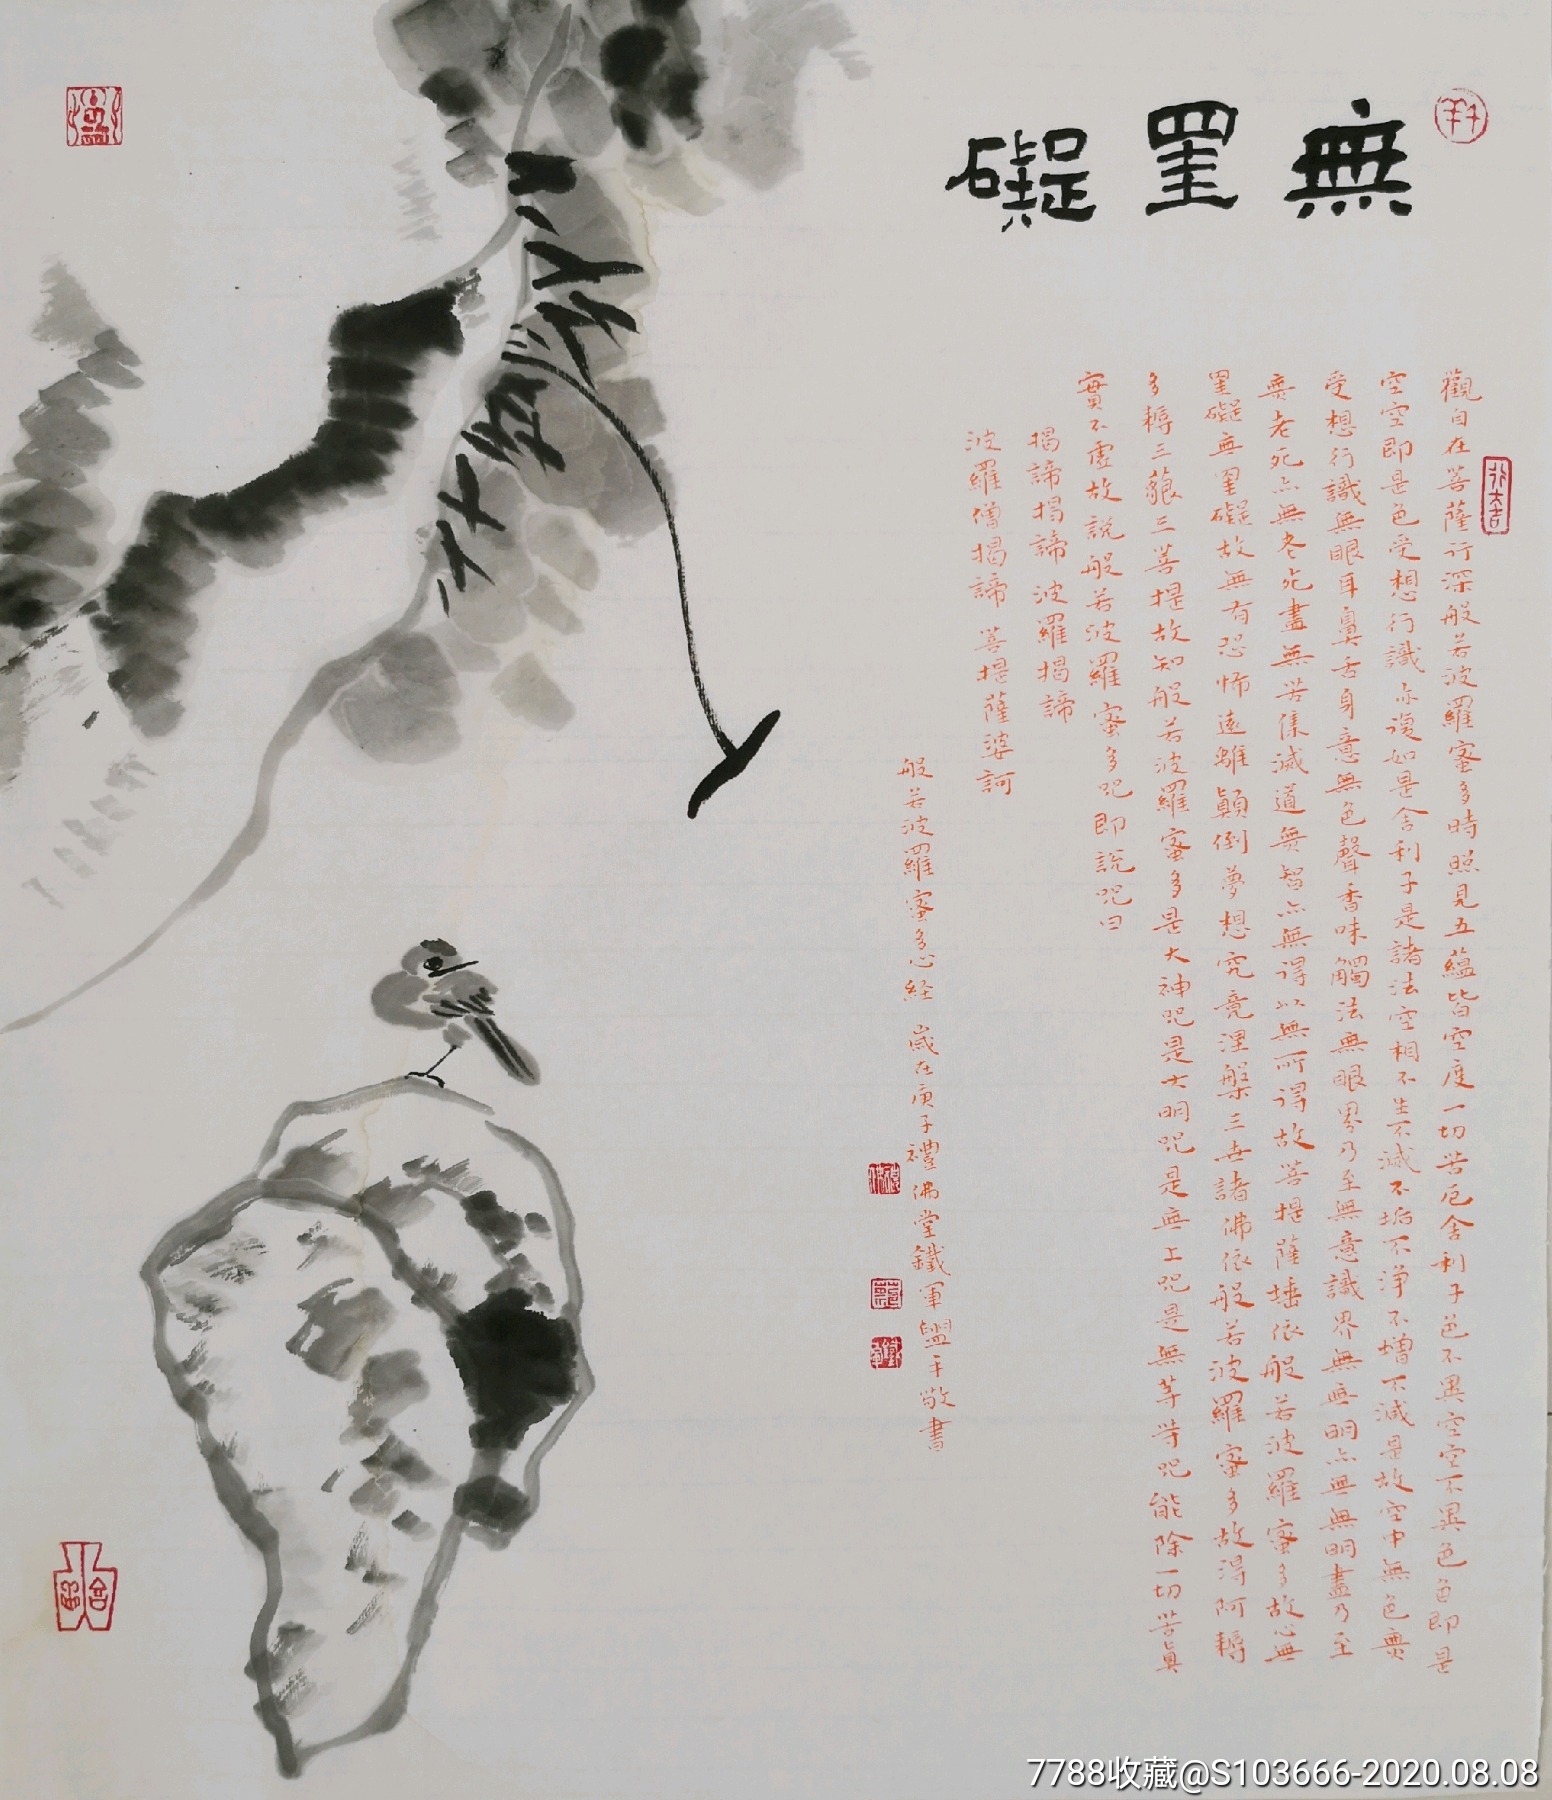 無罣礙
觀自在菩薩行深般若波羅蜜多時照見五蘊皆空度一切苦厄舍利子色不異空空不異色色即是
空空即是色受想行識亦復如是舍利子是諸法空相不生不滅不垢不淨不增不減是故空中無色無
受想行識無眼耳鼻舌身意無色聲香味觸法無眼界乃至無意識界無無明亦無無明盡乃至
無老死亦無老死盡無苦集滅道無智亦無得以無所得故菩提薩埵依般若波羅蜜多故心無
罣礙無罣礙故無有恐怖遠離顛倒夢想究竟涅槃三世諸佛依般若波羅蜜多故得阿耨
多耨三藐三菩提故知般若波羅蜜多是大神咒是大明咒是無上咒是無等等咒能除一切苦真
實不虛故說般若波羅蜜多咒即說咒曰
揭諦揭諦 波羅揭諦
波羅僧揭諦 菩提薩婆訶
般若波羅蜜多心経 歲在庚子禮佛堂鐵軍盥手敬書
大吉
7788收藏@S103666-2020.08.08